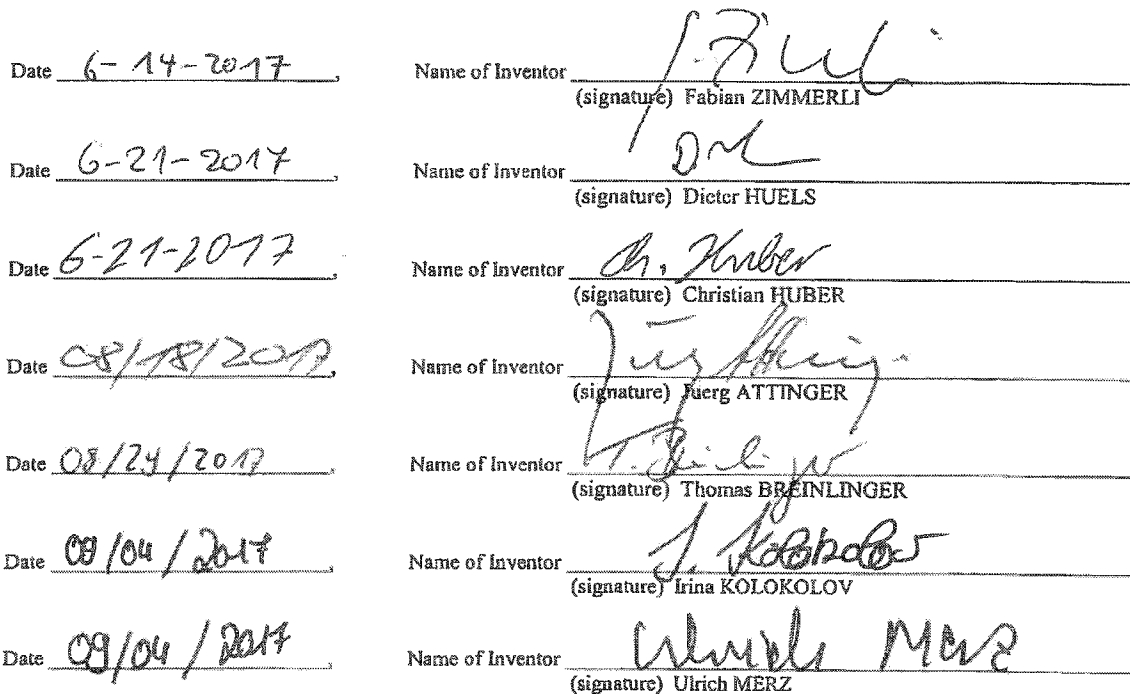 Date 6-14-2017, Name of Inventor F. Zimmerli
(signature) Fabian ZIMMERLI
Date 6-21-2017, Name of Inventor
(signature) Dieter HUELS
Date 6-21-2017, Name of Inventor Ch. Huber
(signature) Christian HUBER
Date 08/18/2017, Name of Inventor Jürg Attinger
(signature) Juerg ATTINGER
Date 08/24/2017, Name of Inventor T. Breinlinger
(signature) Thomas BREINLINGER
Date 09/04/2017, Name of Inventor I. Kolokolov
(signature) Irina KOLOKOLOV
Date 09/04/2017, Name of Inventor Ulrich Merz
(signature) Ulrich MERZ